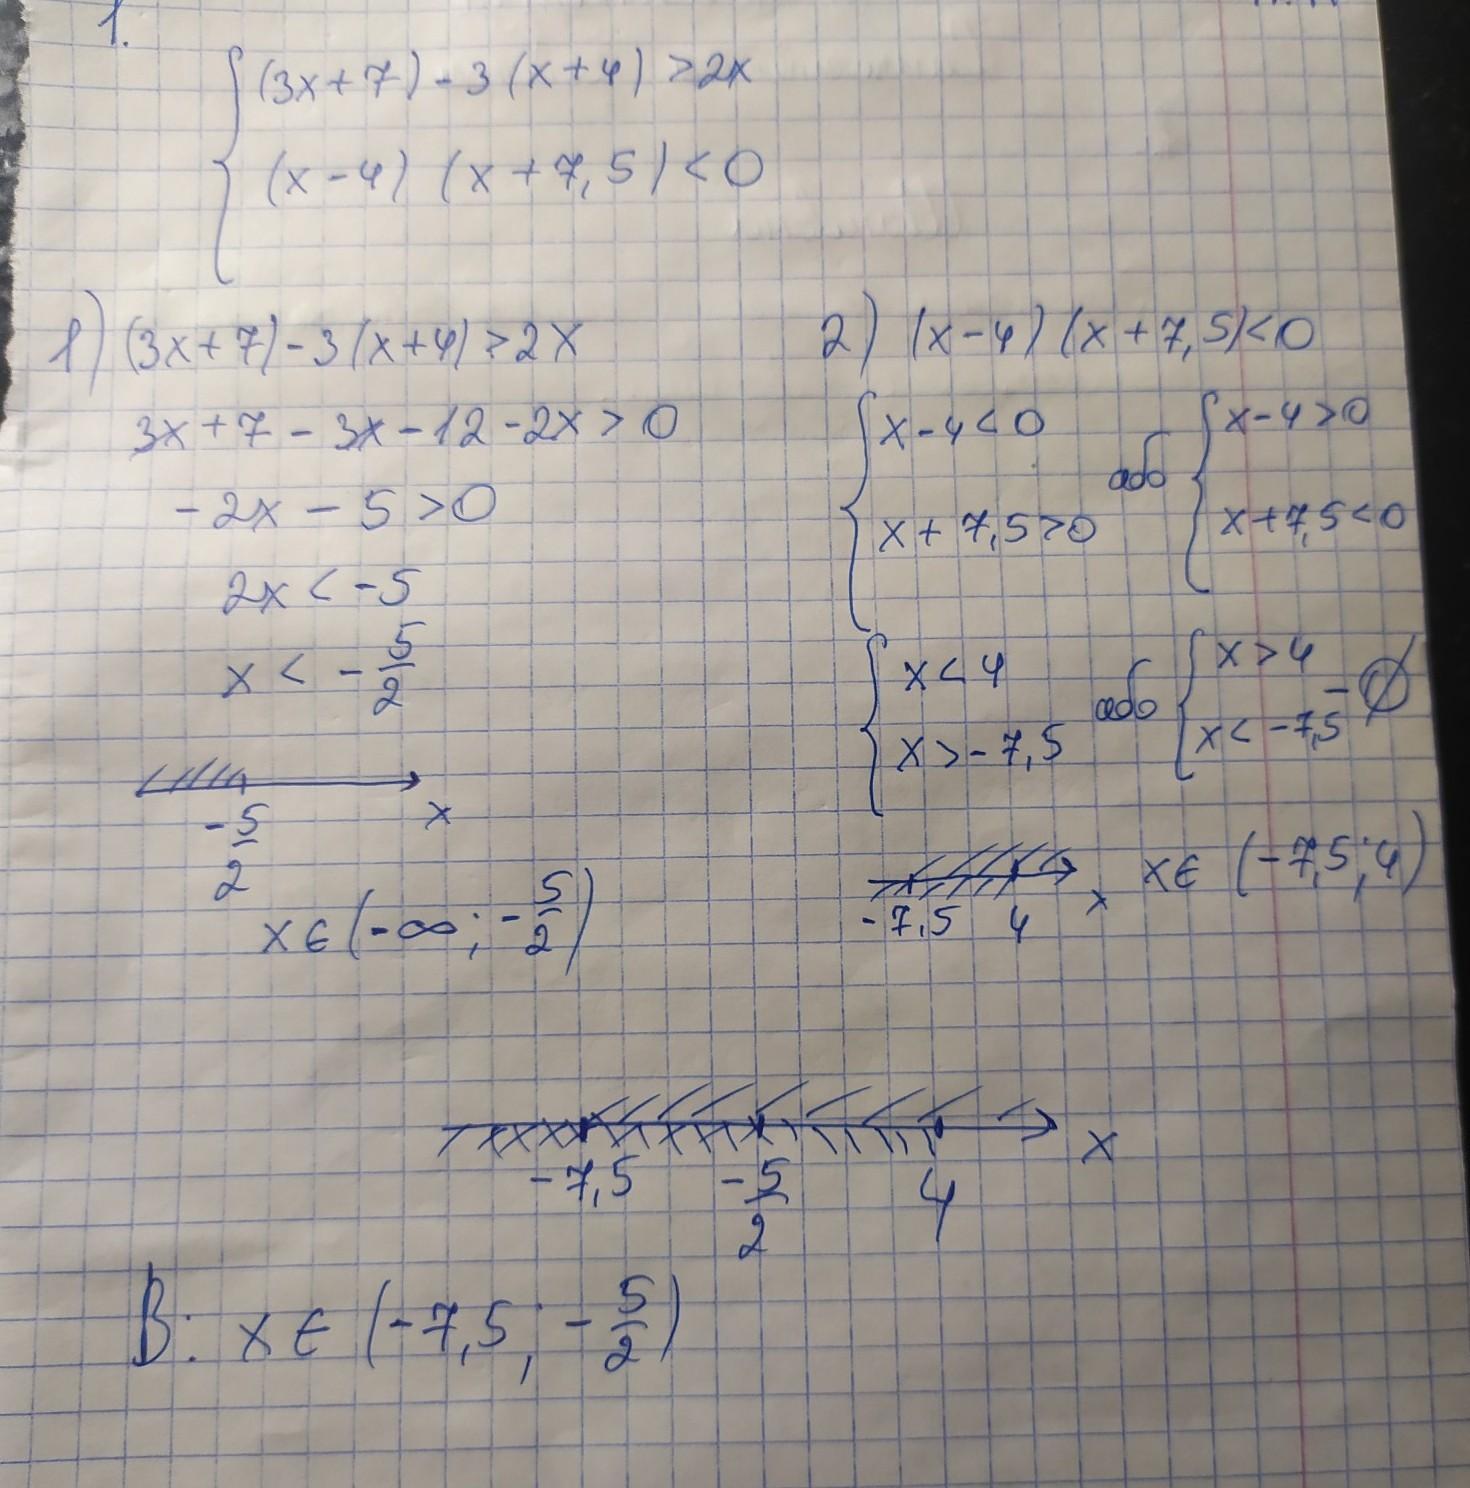 1.
(3x+7)-3(x+4)>2x
(x-4)(x+7,5)<0
1) (3x+7)-3(x+4)>2x
3x+7-3x-12-2x>0
-2x-5>0
2x<-5
x<-5/2
-5/2 x
x∈(-∞;-5/2)
2) (x-4)(x+7,5)<0
x-4<0 або x-4>0
x+7,5>0 x+7,5<0
x<4 або x>4
x>-7,5 x<-7,5 -∅
-7,5 4 x x∈(-7,5;4)
-7,5 -5/2 4 x
В: x∈(-7,5;-5/2)